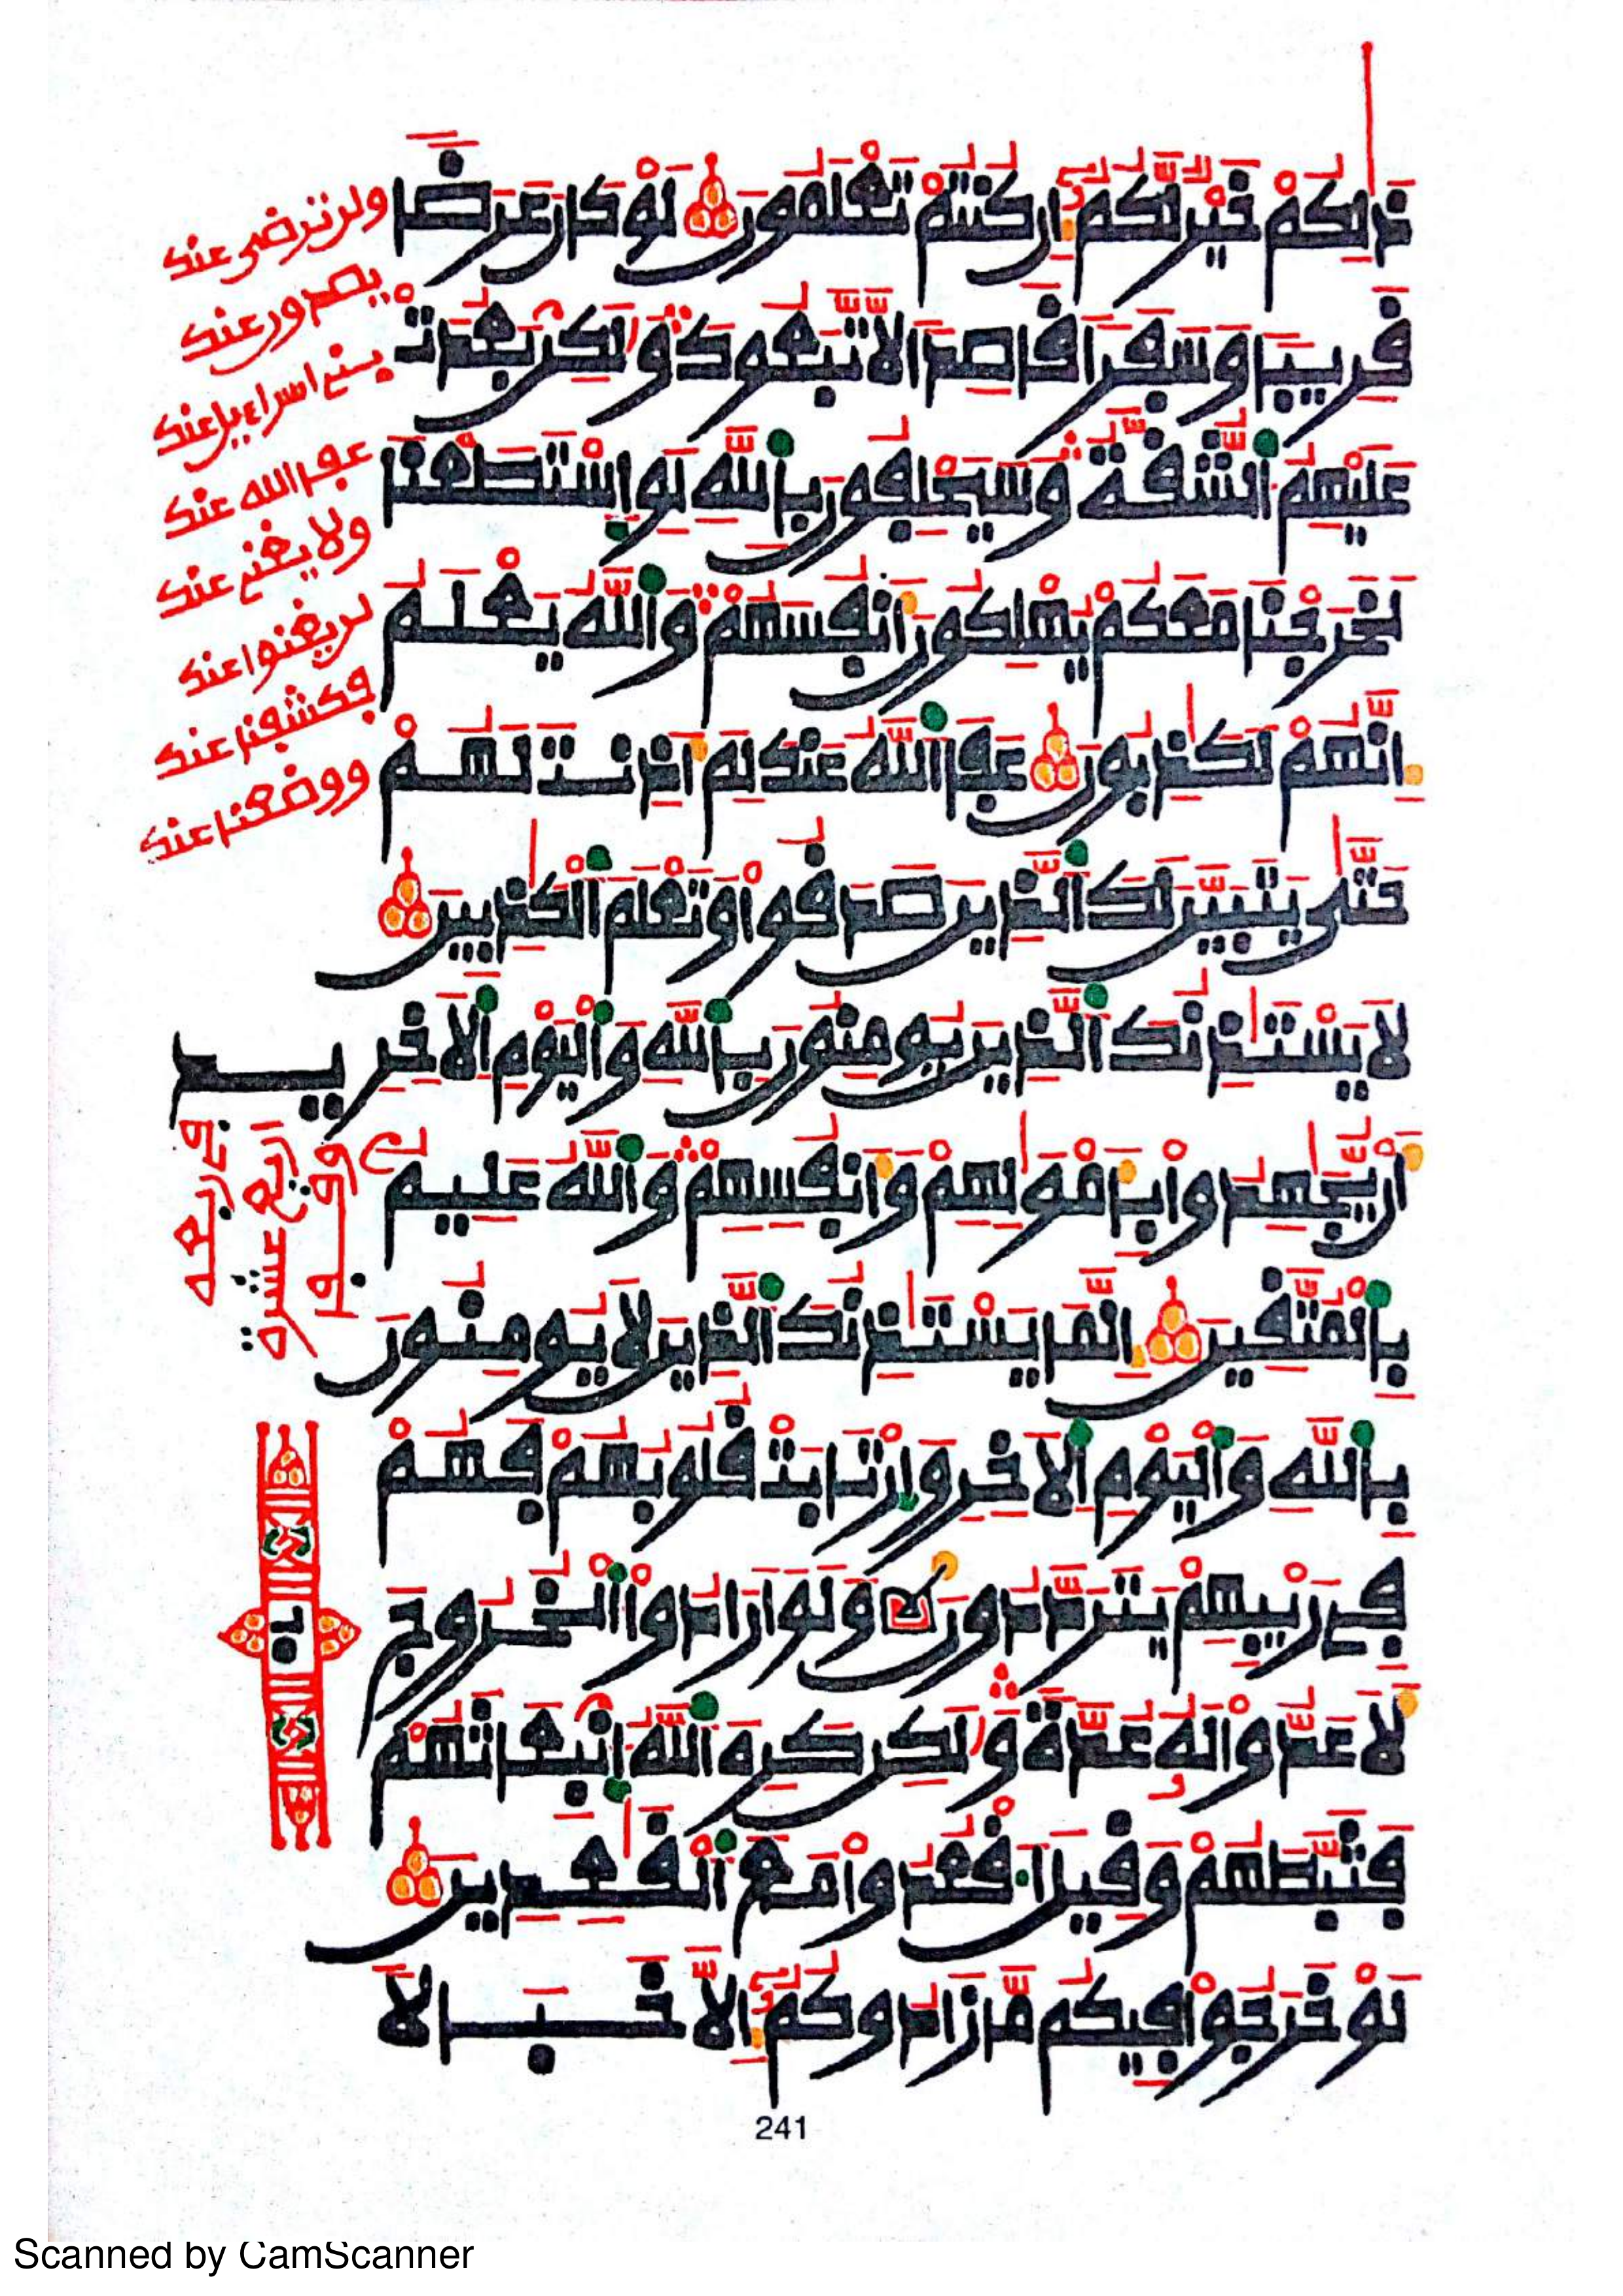 ذَٰلِكُمْ خَيْرٌ لَّكُمُۥٓ إِن كُنتُمْ تَعْلَمُونَ لَوْ كَانَ عَرَضًا
قَرِيبًا وَسَفَرًا قَاصِدًا لَّاتَّبَعُوكَ وَلَٰكِنۢ بَعُدَتْ
عَلَيْهِمُ ٱلشُّقَّةُ وَسَيَحْلِفُونَ بِٱللَّهِ لَوِ ٱسْتَطَعْنَا
لَخَرَجْنَا مَعَكُمْ يُهْلِكُونَ أَنفُسَهُمْ وَٱللَّهُ يَعْلَمُ
إِنَّهُمْ لَكَٰذِبُونَ عَفَا ٱللَّهُ عَنكَ لِمَ أَذِنتَ لَهُمْ
حَتَّىٰ يَتَبَيَّنَ لَكَ ٱلَّذِينَ صَدَقُوا وَتَعْلَمَ ٱلْكَٰذِبِينَ
لَا يَسْتَٰذِنُكَ ٱلَّذِينَ يُومِنُونَ بِٱللَّهِ وَٱلْيَوْمِ ٱلَاخِرِ
أَنْ يُّجَٰهِدُوا بِأَمْوَٰلِهِمْ وَأَنفُسِهِمْ وَٱللَّهُ عَلِيمٌ
بِٱلْمُتَّقِينَ إِنَّمَا يَسْتَٰذِنُكَ ٱلَّذِينَ لَا يُومِنُونَ
بِٱللَّهِ وَٱلْيَوْمِ ٱلَاخِرِ وَٱرْتَابَتْ قُلُوبُهُمْ فَهُمْ
فِي رَيْبِهِمْ يَتَرَدَّدُونَ وَلَوْ أَرَادُوا ٱلْخُرُوجَ
لَأَعَدُّوا لَهُۥ عُدَّةً وَلَٰكِن كَرِهَ ٱللَّهُ ٱنۢبِعَاثَهُمْ
فَثَبَّطَهُمْ وَقِيلَ ٱقْعُدُوا مَعَ ٱلْقَٰعِدِينَ
لَوْ خَرَجُوا فِيكُم مَّا زَادُوكُمُۥٓ إِلَّا خَبَالًا
ولن ترضى عنك
يصدون عنك
بني اسراءيل عنك
عفا الله عنك
ولا يغني عنك
لن يغنوا عنك
فكشفنا عنك
ووضعنا عنك
241
Scanned by CamScanner